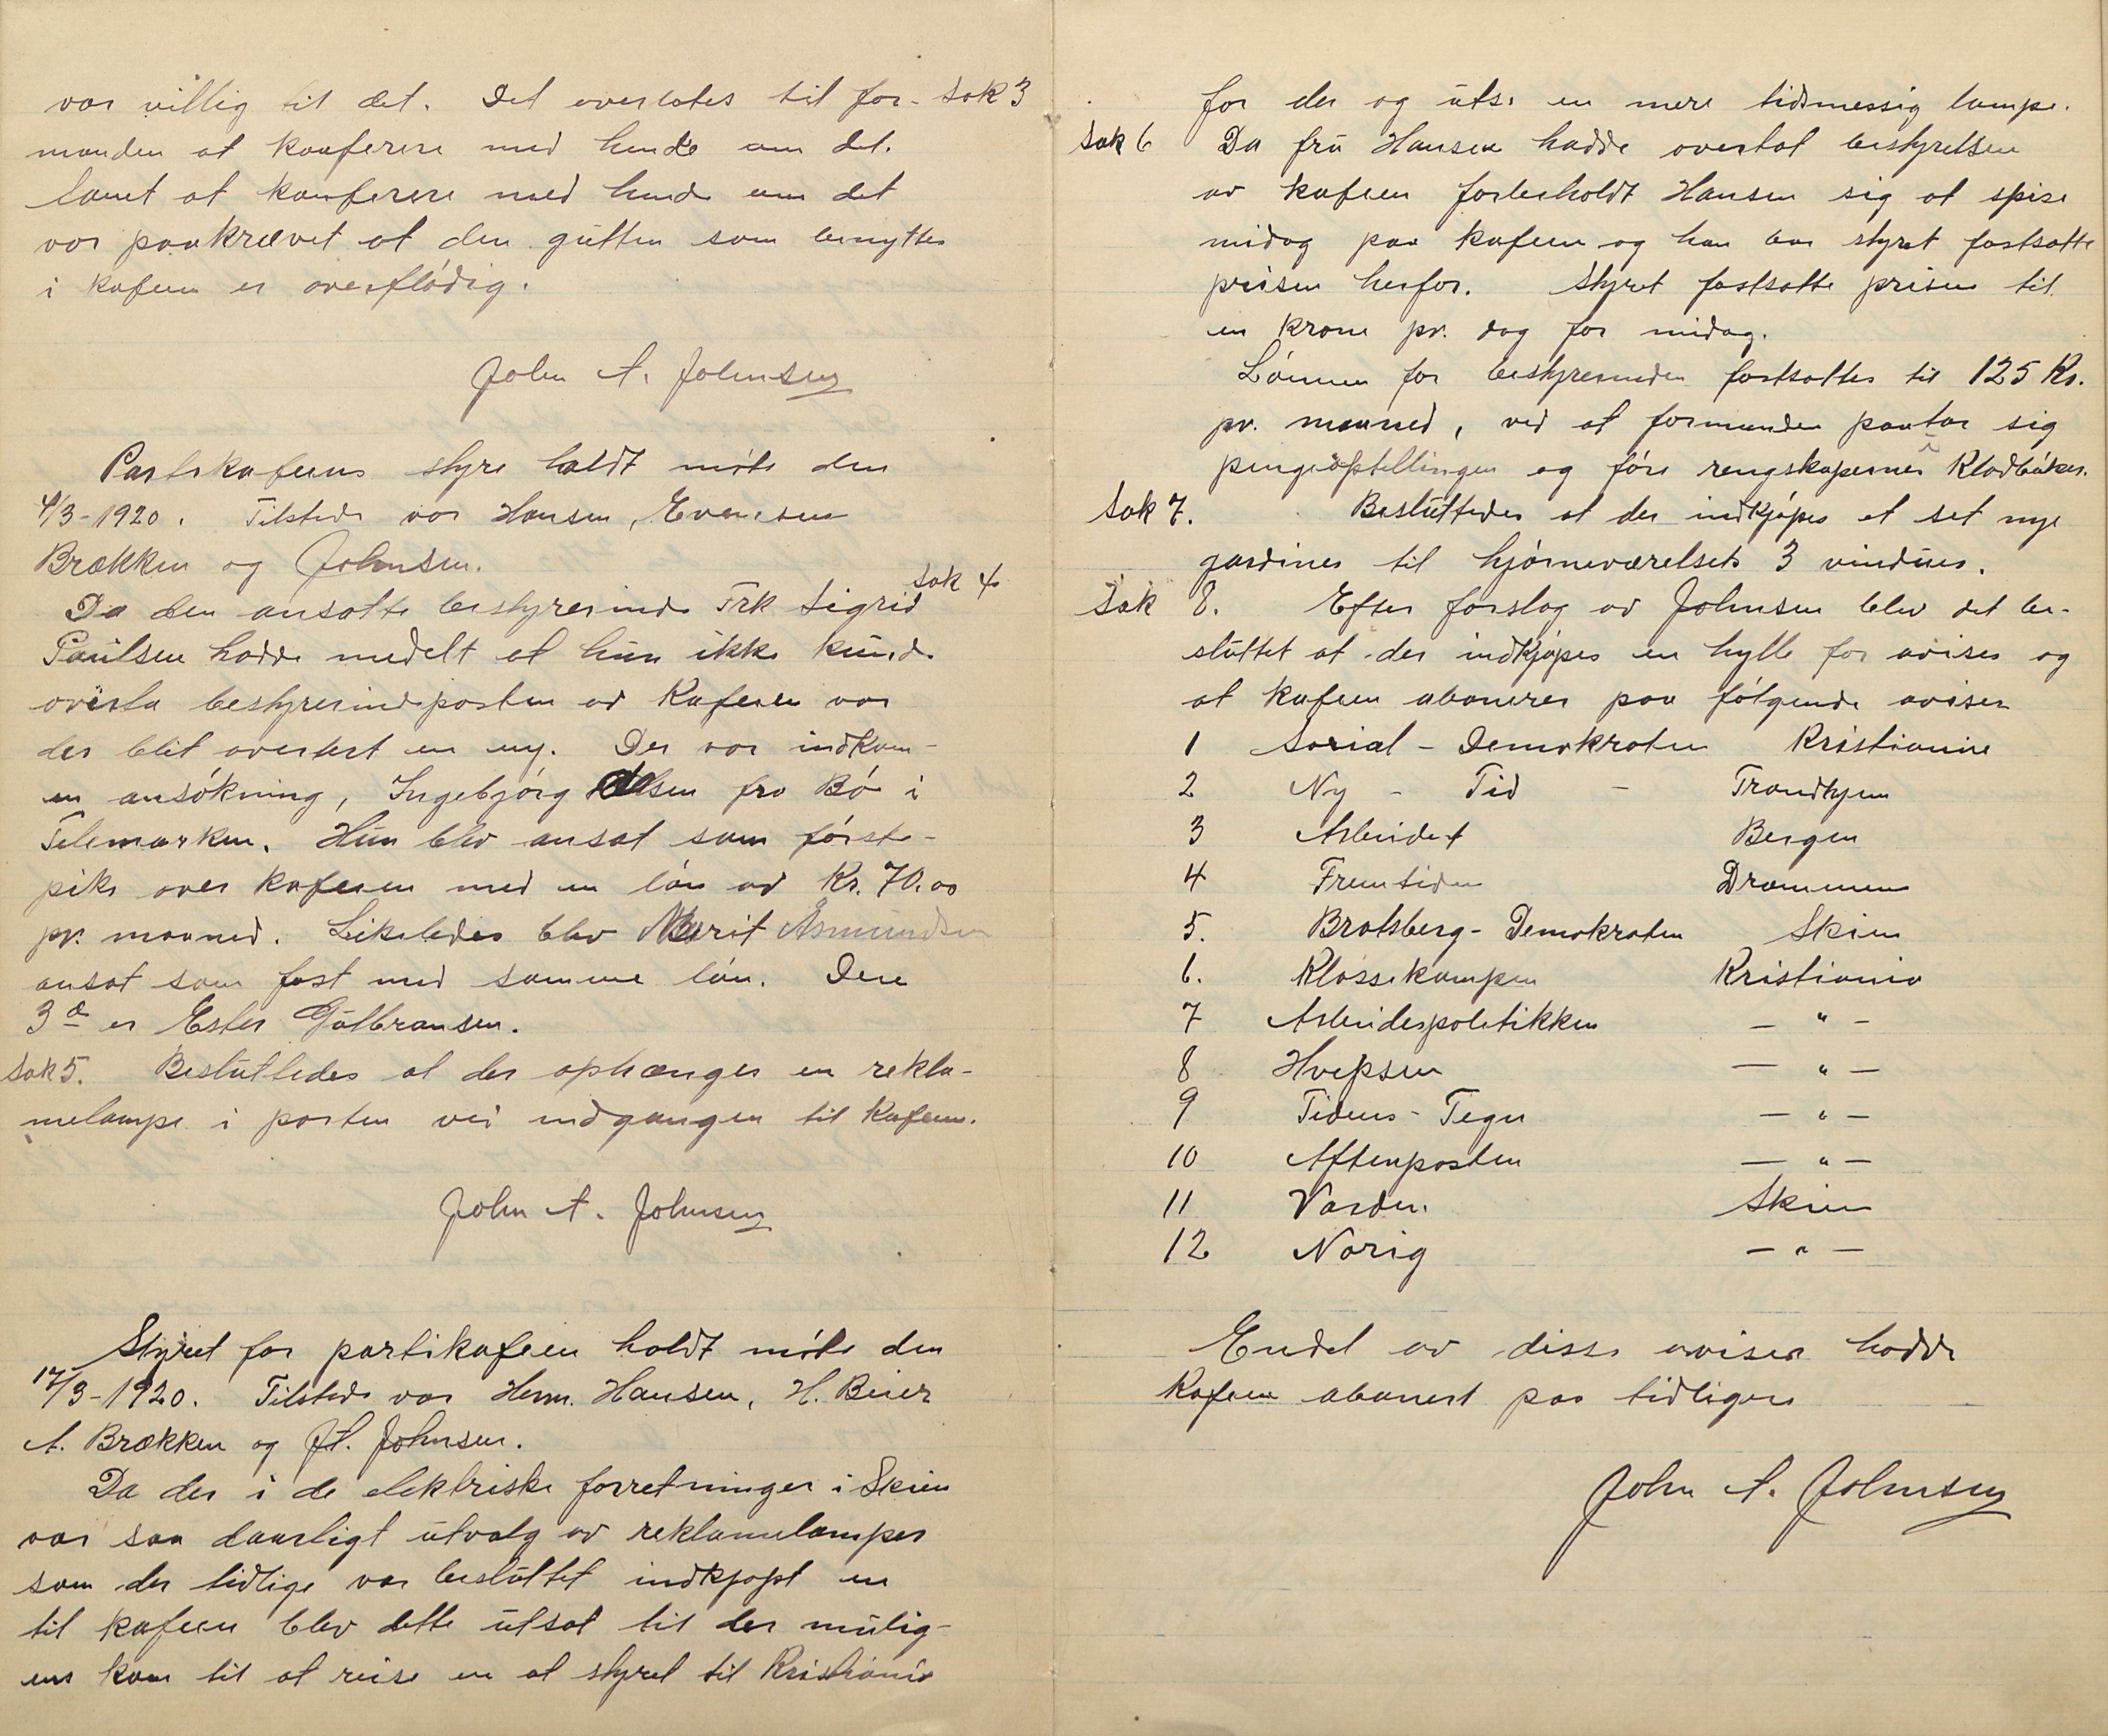 var villig til det. Det overlates til for- Sak 3
manden at konferere med hende om det.
lanet at konferere med hende om det
var paakrævet at den gutten som benyttes
i kafeen er overflødig.
John A. Johnsen
Partikafeens styre holdt møte den
4/3-1920. Tilstede var Hansen, Evensen
Brækken og Johnsen.
Sak 4
Da den ansatte bestyrerinde Frk Sigrid
Paulsen hadde medelt at hun ikke kunde
overta bestyrerindeposten av Kafeen var
der blit avertert en ny. Der var indkom-
en ansøkning, Ingebjørg Olsen fra Bø i
Telemarken. Hun blev ansat som første-
pike over kafeen med en løn av Kr. 70.00
pr. maaned. Likeledes blev Marit Asmundsen
ansat som fast med samme løn. Den
3de er Ester Gulbransen.
Sak 5. Besluttedes at der ophænges en rekla-
melampe i porten vei indgangen til Kafeen.
John A. Johnsen
Styret for partikafeen holdt møte den
17/3-1920. Tilstede var Herm. Hansen, H. Beier
A. Brækken og J.A. Johnsen.
Da der i de elektriske forretninger i Skien
var saa daarligt utvalg av reklamelamper
som der tidlige var besluttet indkjøpt en
til kafeen blev dette utsat til der mulig-
ens kom til at reise en at styret til Kristiania
for der og utse en mere tidsmessig lampe.
Sak 6 Da fru Hansen hadde overtat bestyrelsen
av kafeen forbeholdt Hansen sig at spise
midag paa kafeen og han bar styret fastsatte
prisen herfor. Styret fastsatte prisen til
en krone pr. dag for midag.
Lønnen for bestyrerinden fastsattes til 125 Kr.
pr. maaned, ved at formanden paatar sig
pengeopstellingen og føre rengskapernes Kladbøker.
Sak 7. Besluttedes at der indkjøpes et set nye
gardiner til hjørneværelsets 3 vinduer.
Sak 8. Efter forslag av Johnsen blev det be-
sluttet at der indkjøpes en hylle for aviser og
at kafeen abonerer paa følgende aviser
1 Social-Demokraten Kristiania
2 Ny - Tid - Trondhjem
3 Arbeidet Bergen
4 Fremtiden Drammen
5. Bratsberg-Demokraten Skien
6. Klassekampen Kristiania
7 Arbeiderpolitikken — " —
8 Hvepsen — " —
9 Tidens-Tegn — " —
10 Aftenposten — " —
11 Varden. Skien
12 Norig — " —
Endel av disse aviser hadde
Kafeen abonert paa tidligere
John A. Johnsen